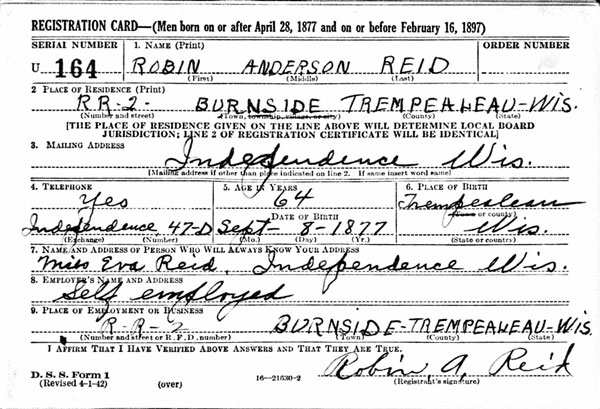 REGISTRATION CARD—(Men born on or after April 28, 1877 and on or before February 16, 1897)
SERIAL NUMBER 1. NAME (Print) ORDER NUMBER
U 164 ROBIN ANDERSON REID
(First) (Middle) (Last)
2 PLACE OF RESIDENCE (Print)
RR-2- BURNSIDE TREMPEALEAU-WIS.
(Number and street) (Town, township, village, or city) (County) (State)
[THE PLACE OF RESIDENCE GIVEN ON THE LINE ABOVE WILL DETERMINE LOCAL BOARD
JURISDICTION; LINE 2 OF REGISTRATION CERTIFICATE WILL BE IDENTICAL]
3. MAILING ADDRESS
Independence Wis.
[Mailing address if other than place indicated on line 2. If same insert word same]
4. TELEPHONE 5. AGE IN YEARS 6. PLACE OF BIRTH
Yes 64 Trempealeau
DATE OF BIRTH (Town or county)
Independence 47-D Sept- 8-1877 Wis.
(Exchange) (Number) (Mo.) (Day) (Yr.) (State or country)
7. NAME AND ADDRESS OF PERSON WHO WILL ALWAYS KNOW YOUR ADDRESS
Miss Eva Reid, Independence Wis.
8. EMPLOYER'S NAME AND ADDRESS
Self employed
9. PLACE OF EMPLOYMENT OR BUSINESS
R-R-2 BURNSIDE-TREMPEALEAU-WIS.
(Number and street or R. F. D. number) (Town) (County) (State)
I AFFIRM THAT I HAVE VERIFIED ABOVE ANSWERS AND THAT THEY ARE TRUE.
Robin A. Reid
D. S. S. Form 1
(Revised 4-1-42) (over) 16—21630-2 (Registrant's signature)